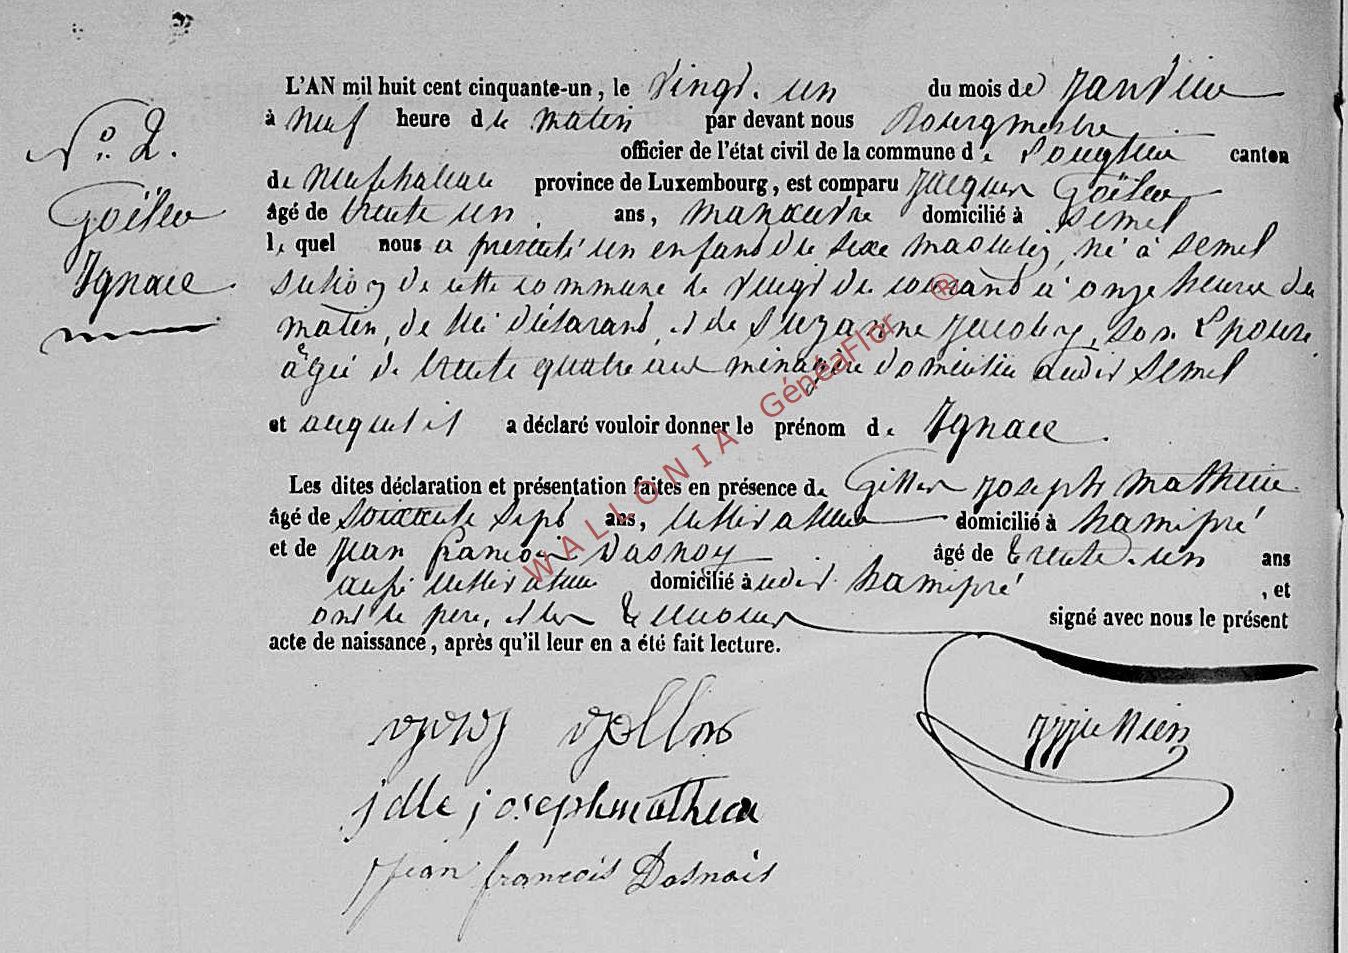 L'AN mil huit cent cinquante-un, le vingt-un du mois de Janvier
à neuf heure du matin par devant nous Bourgmestre
officier de l'état civil de la commune de Longlier canton
de Neufchateau province de Luxembourg, est comparu Jacques Goëller
âgé de trente un ans, manœuvre domicilié à Semel
lequel nous a présenté un enfant du sexe masculin, né à Semel
section de cette commune le vingt du courant à onze heures du
matin, de lui déclarant, et de Suzanne Jacoby, son Epouse
âgée de trente quatre ans ménagère domiciliée audit Semel
et auquel il a déclaré vouloir donner le prénom de Ignace.
Les dites déclaration et présentation faites en présence de Gilles Joseph Mathieu
âgé de soixante sept ans, cultivateur domicilié à hamipré
et de Jean François Dasnoy âgé de trente-un ans
aussi cultivateur domicilié audit hamipré, et
ont le père, et les témoins signé avec nous le présent
acte de naissance, après qu'il leur en a été fait lecture.
N° 2.
Goëller
Ignace
joseph mathieu
Jean françois Dasnois
WALLONIA GénéaFlor ®